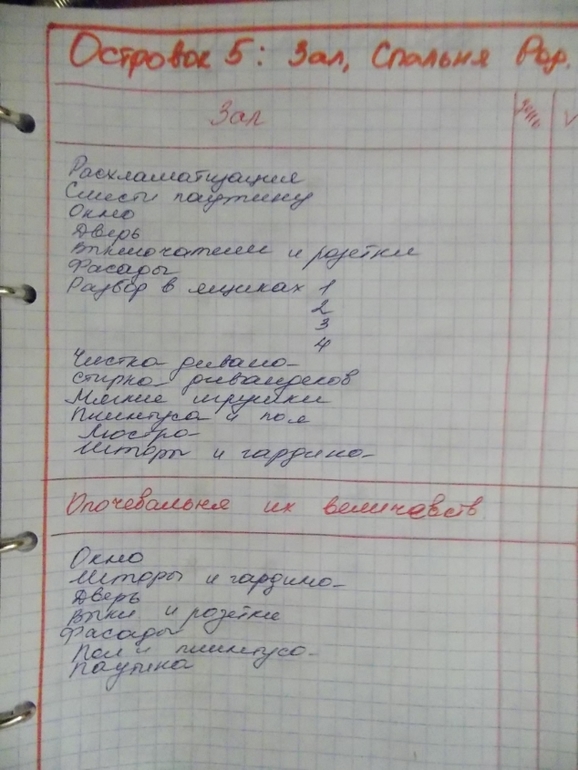 Островок 5: Зал, Спальня Род.
Зал
V
Расхламатизация
Смести паутину
Окно
Дверь
Выключатели и розетки
Фасады
Разбор в ящиках 1
2
3
4
Чистка дивана
Стирка дивандеков
Мягкие игрушки
Плинтуса и пол
Люстра
Шторы и гардина
Опочевальня их величавств
Окно
Шторы и гардина
Дверь
Выкл и розетки
Фасады
Пол и плинтуса
Паутина